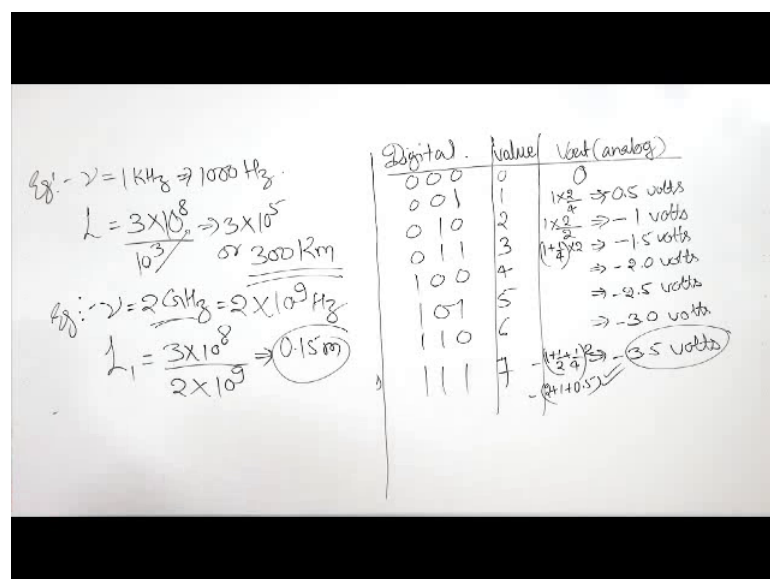 Eg:- ν = 1 KHz ⇒ 1000 Hz.
L = 3×10⁸/10³ ⇒ 3×10⁵
or 300 Km
Eg:- ν = 2 GHz = 2×10⁹ Hz
L₁ = 3×10⁸/2×10⁹ ⇒ 0.15m
Digital. value Vout (analog)
000 0 0
001 1 1×2/4 ⇒ 0.5 volts
010 2 1×2/2 ⇒ -1 volts
011 3 ⇒ -1.5 volts
100 4 ⇒ -2.0 volts
101 5 ⇒ -2.5 volts
110 6 ⇒ -3.0 volts
111 7 ⇒ -3.5 volts
-(2+1+0.5)